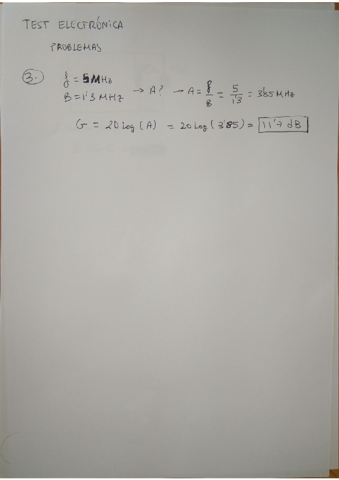 TEST ELECTRÓNICA
PROBLEMAS
3. f = 5 MHz
B = 1'3 MHz → A? → A = f/B = 5/1'3 = 3'85 MHz
G = 20 log (A) = 20 log (3'85) = 11'7 dB